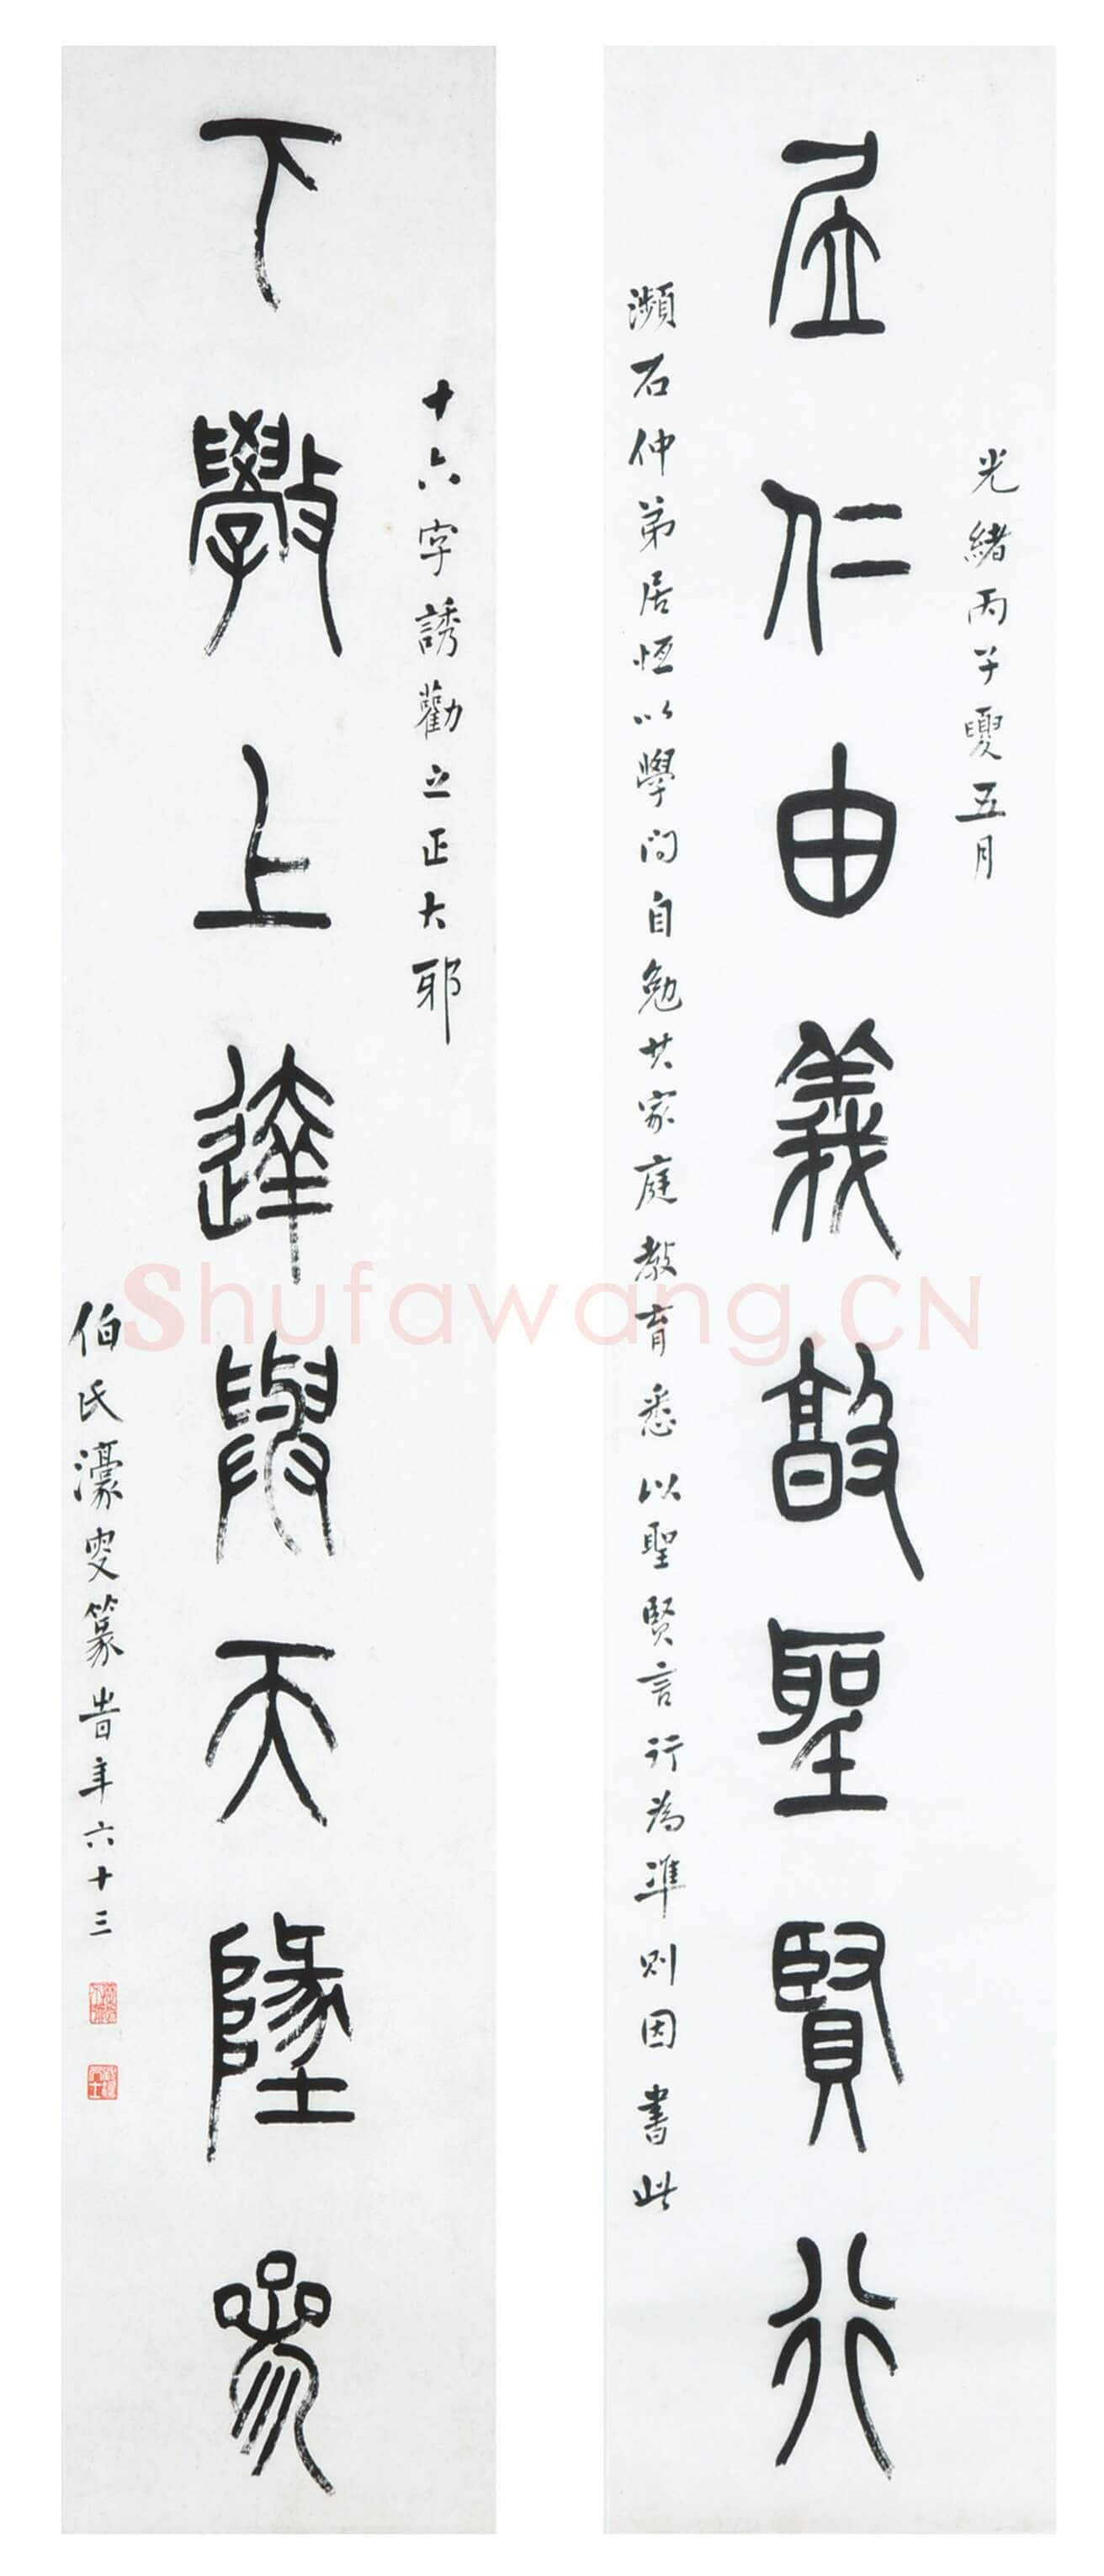 光緒丙子夏五月
居仁由義敵聖賢行
瀕石仲弟居恆以學問自勉其家庭教育悉以聖賢言行為準則因書此
十六字誘勸之正大耶
下斆上達與天墬參
伯氏濠叟篆書時年六十三
Shufawang.CN